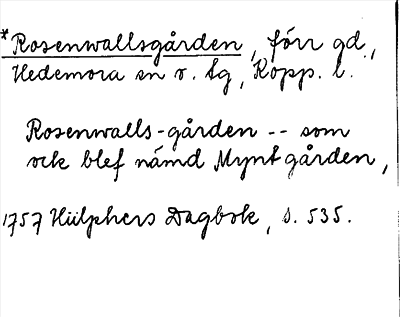 *Rosenwallsgården, förr gd.,
Hedemora sn o. tg, Kopp. l.
Rosenwalls-gården -- som
ock blef nämd Myntgården,
1757 Hülphers Dagbok, s. 535.